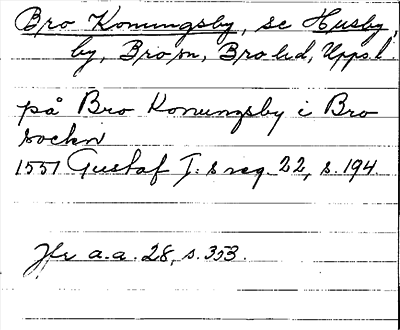 Bro Konungsby, se Husby,
by, Bro sn, Bro hd, Uppl.
på Bro Konungsby i Bro
sockn
1551 Gustaf I:s reg. 22, s. 194.
Jfr a.a. 28, s. 353.